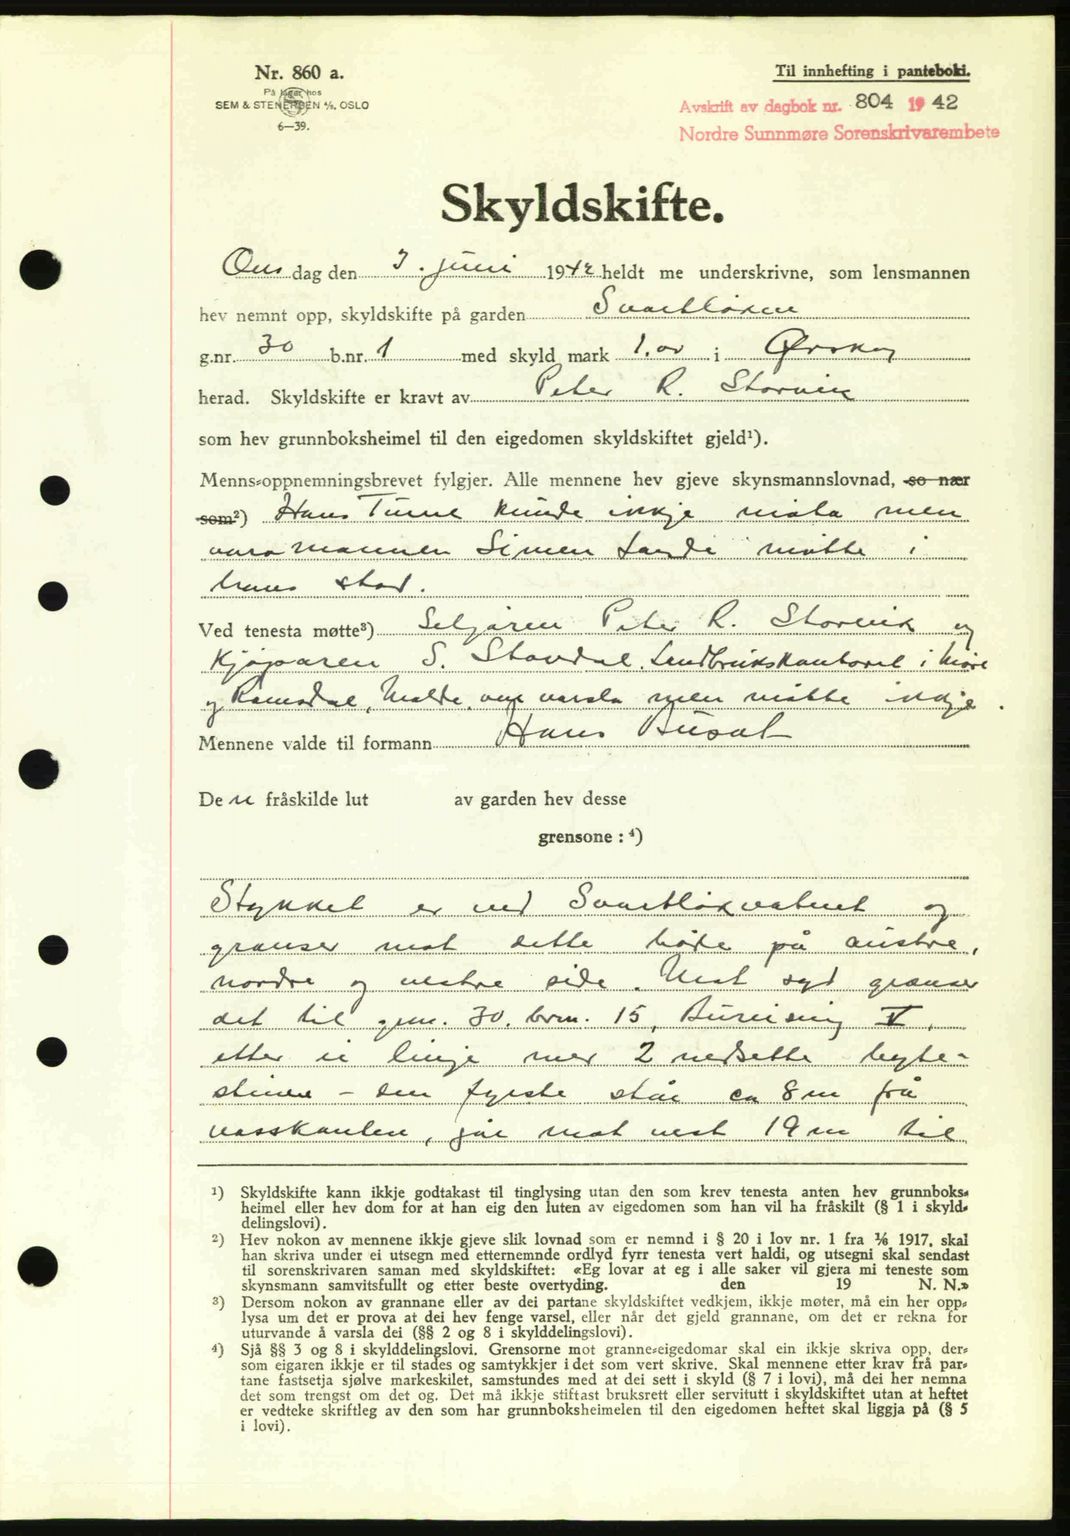 Nr. 860 a.
På lager hos
SEM & STENERSEN A/S, OSLO
6—39.
Til innhefting i panteboki.
Avskrift av dagbok nr. 804 1942
Nordre Sunnmøre Sorenskrivarembete
Skyldskifte.
Ons dag den 3. juni 1942 heldt me underskrivne, som lensmannen
hev nemnt opp, skyldskifte på garden Svartløken
g.nr. 30 b.nr. 1 med skyld mark 1.00 i Ørskog
herad. Skyldskifte er kravt av Peter R. Storvik
som hev grunnboksheimel til den eigedomen skyldskiftet gjeld¹).
Menns-oppnemningsbrevet fylgjer. Alle mennene hev gjeve skynsmannslovnad, so nær
som²) Hans Tunne kunde ikkje møta men
varamannen Simen Lande møtte i
hans stad.
Ved tenesta møtte³) Seljaren Peter R. Storvik og
Kjøparen S. Stavdal. Landbrukskontoret i Møre
og Romsdal, Molde, var varsla men møtte ikkje.
Mennene valde til formann Hans Busat
De n fråskilde lut av garden hev desse
grensone : ⁴)
Stykket er ved Svartløkvatnet og
grenser mot dette både på austre,
nordre og vestre side. Mot syd grenser
det til gnr. 30, brn. 15, Bureising V,
etter ei linje med 2 nedsette byte-
steiner – den fyrste står ca 8 m frå
vasskanten, går mot vest 19 m til
¹) Skyldskifte kann ikkje godtakast til tinglysing utan den som krev tenesta anten hev grunnboks-
heimel eller hev dom for at han eig den luten av eigedomen som han vil ha fråskilt (§ 1 i skyld-
delingslovi).
²) Hev nokon av mennene ikkje gjeve slik lovnad som er nemnd i § 20 i lov nr. 1 fra 1/6 1917, skal
han skriva under ei utsegn med etternemnde ordlyd fyrr tenesta vert haldi, og utsegni skal sendast
til sorenskrivaren saman med skyldskiftet: «Eg lovar at eg i alle saker vil gjera mi teneste som
skynsmann samvitsfullt og etter beste overtyding. den 19 N. N.»
³) Dersom nokon av grannane eller av dei partane skyldskiftet vedkjem, ikkje møter, må ein her opp-
lysa um det er prova at dei hev fenge varsel, eller når det gjeld grannane, om det er rekna for
uturvande å varsla dei (§§ 2 og 8 i skylddelingslovi).
⁴) Sjå §§ 3 og 8 i skylddelingslovi. Grensorne mot granne-eigedomar skal ein ikkje skriva opp, der-
som eigaren ikkje er til stades og samtykkjer i det som vert skrive. Skal mennene etter krav frå par-
tane fastsetja sjølve markeskilet, samstundes med at dei sett i skyld (§ 7 i lovi), må dei her nemna
det som trengst om det og. Det må ikkje stiftast bruksrett eller servitutt i skyldskiftet utan at heftet
er vedteke skriftleg av den som har grunnboksheimelen til den eigedomen heftet skal liggja på (§ 5
i lovi).